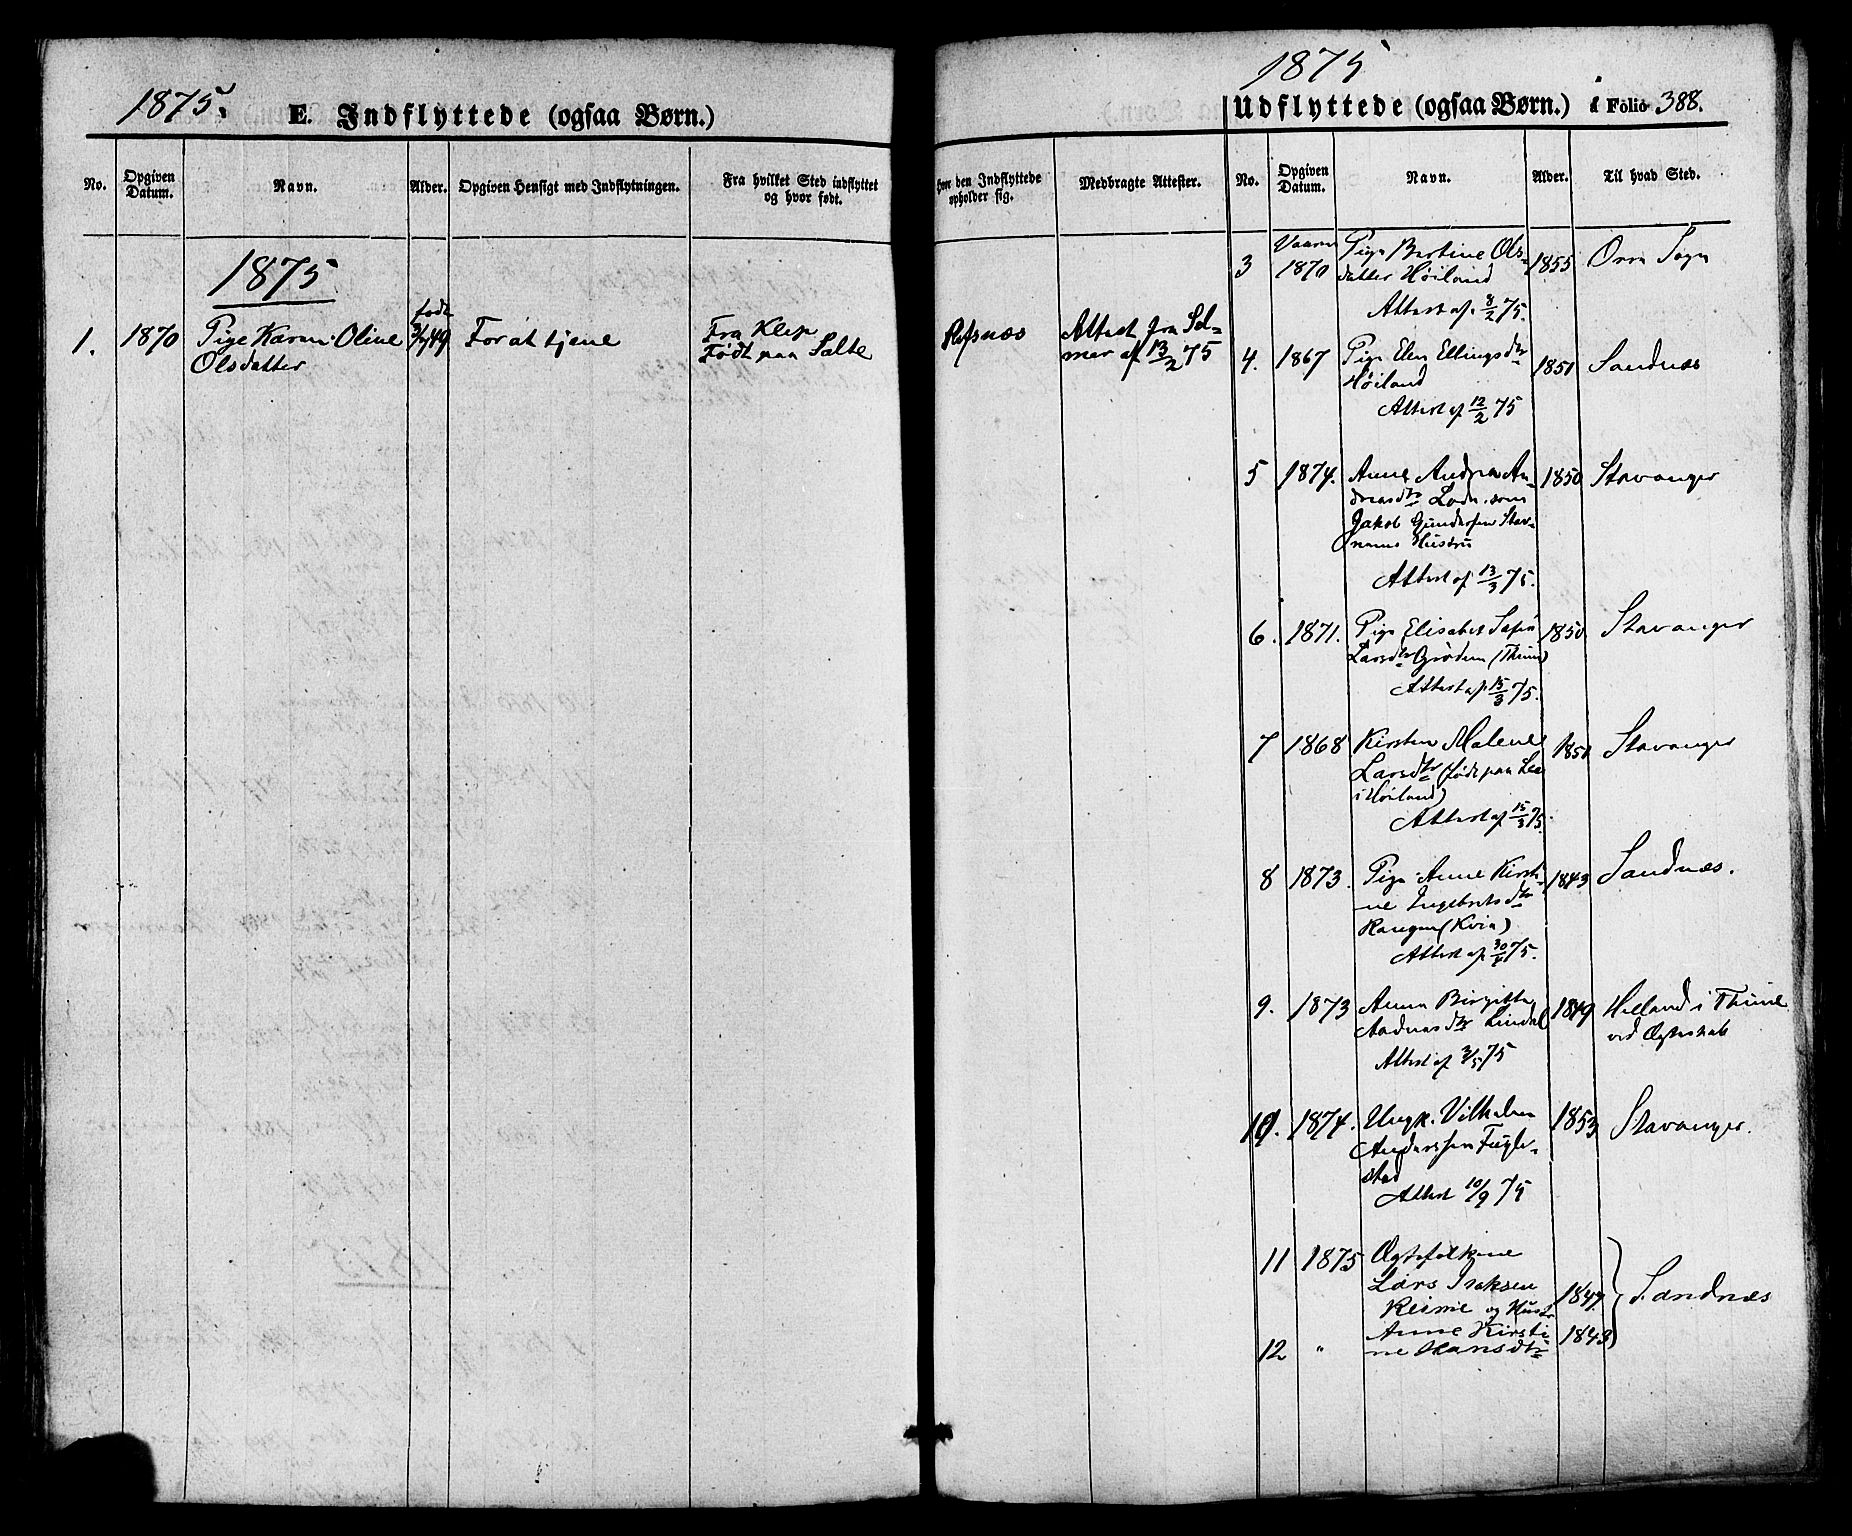 1875.
E. Indflyttede (ogsaa Børn.)
No.
Opgiven Datum.
Navn.
Alder.
Opgiven Hensigt med Indflytningen.
Fra hvilket Sted indflyttet
og hvor født.
1875
1. 1870 Pige Karen Oline født For at tjene Fra Klep
Olsdatter Født paa Salte
1875
Udflyttede (ogsaa Børn.) Folio 388.
Hvor den Indflyttede
opholder sig.
Medbragte Attester.
No.
Opgiven Datum.
Navn.
Alder.
Til hvad Sted.
Refsnæs Attest fra
af 13/2 75
3 Vaaren 1870 Pige Bertine Ols- 1855 Orre Sogn
datter Høiland
Attest af 8/2 75.
4. 1867 Pige Elen Ellingsdtr 1851 Sandnæs
Høiland
Attest af 12/2 75
5 1874. Anne Andrea An- 1850 Stavanger
dreasdtr
Jakob Gundersen Stav-
nems Hustru
Attest af 13/3 75.
6. 1871. Pige Elisabet 1850 Stavanger
Larsdtr Grødem (Thime)
Attest af 15/3 75.
7 1868 Kirsten Malene 1851 Stavanger
Larsdtr (født paa
i Høiland)
Attest af 15/3 75.
8 1873. Pige Anne Kirsti- 1843 Sandnæs.
ne Ingebretsdtr
(Kvia)
Attest af 30/4 75.
9. 1873 Anna Birgitta 1849 Helland i Thime
Aadnasdtr ved Ægteskab
Attest af 3/5 75
10. 1874. Ungk. Vilhelm 1853 Stavanger.
Anderssen Fugle-
stad
Attest 10/9 75
11 1875 Ægtefolkene
Lars Isaksen
Reime og Hustr 1847 Sandnæs
Anne Kirsti- 1843
12 " ne Hansdtr